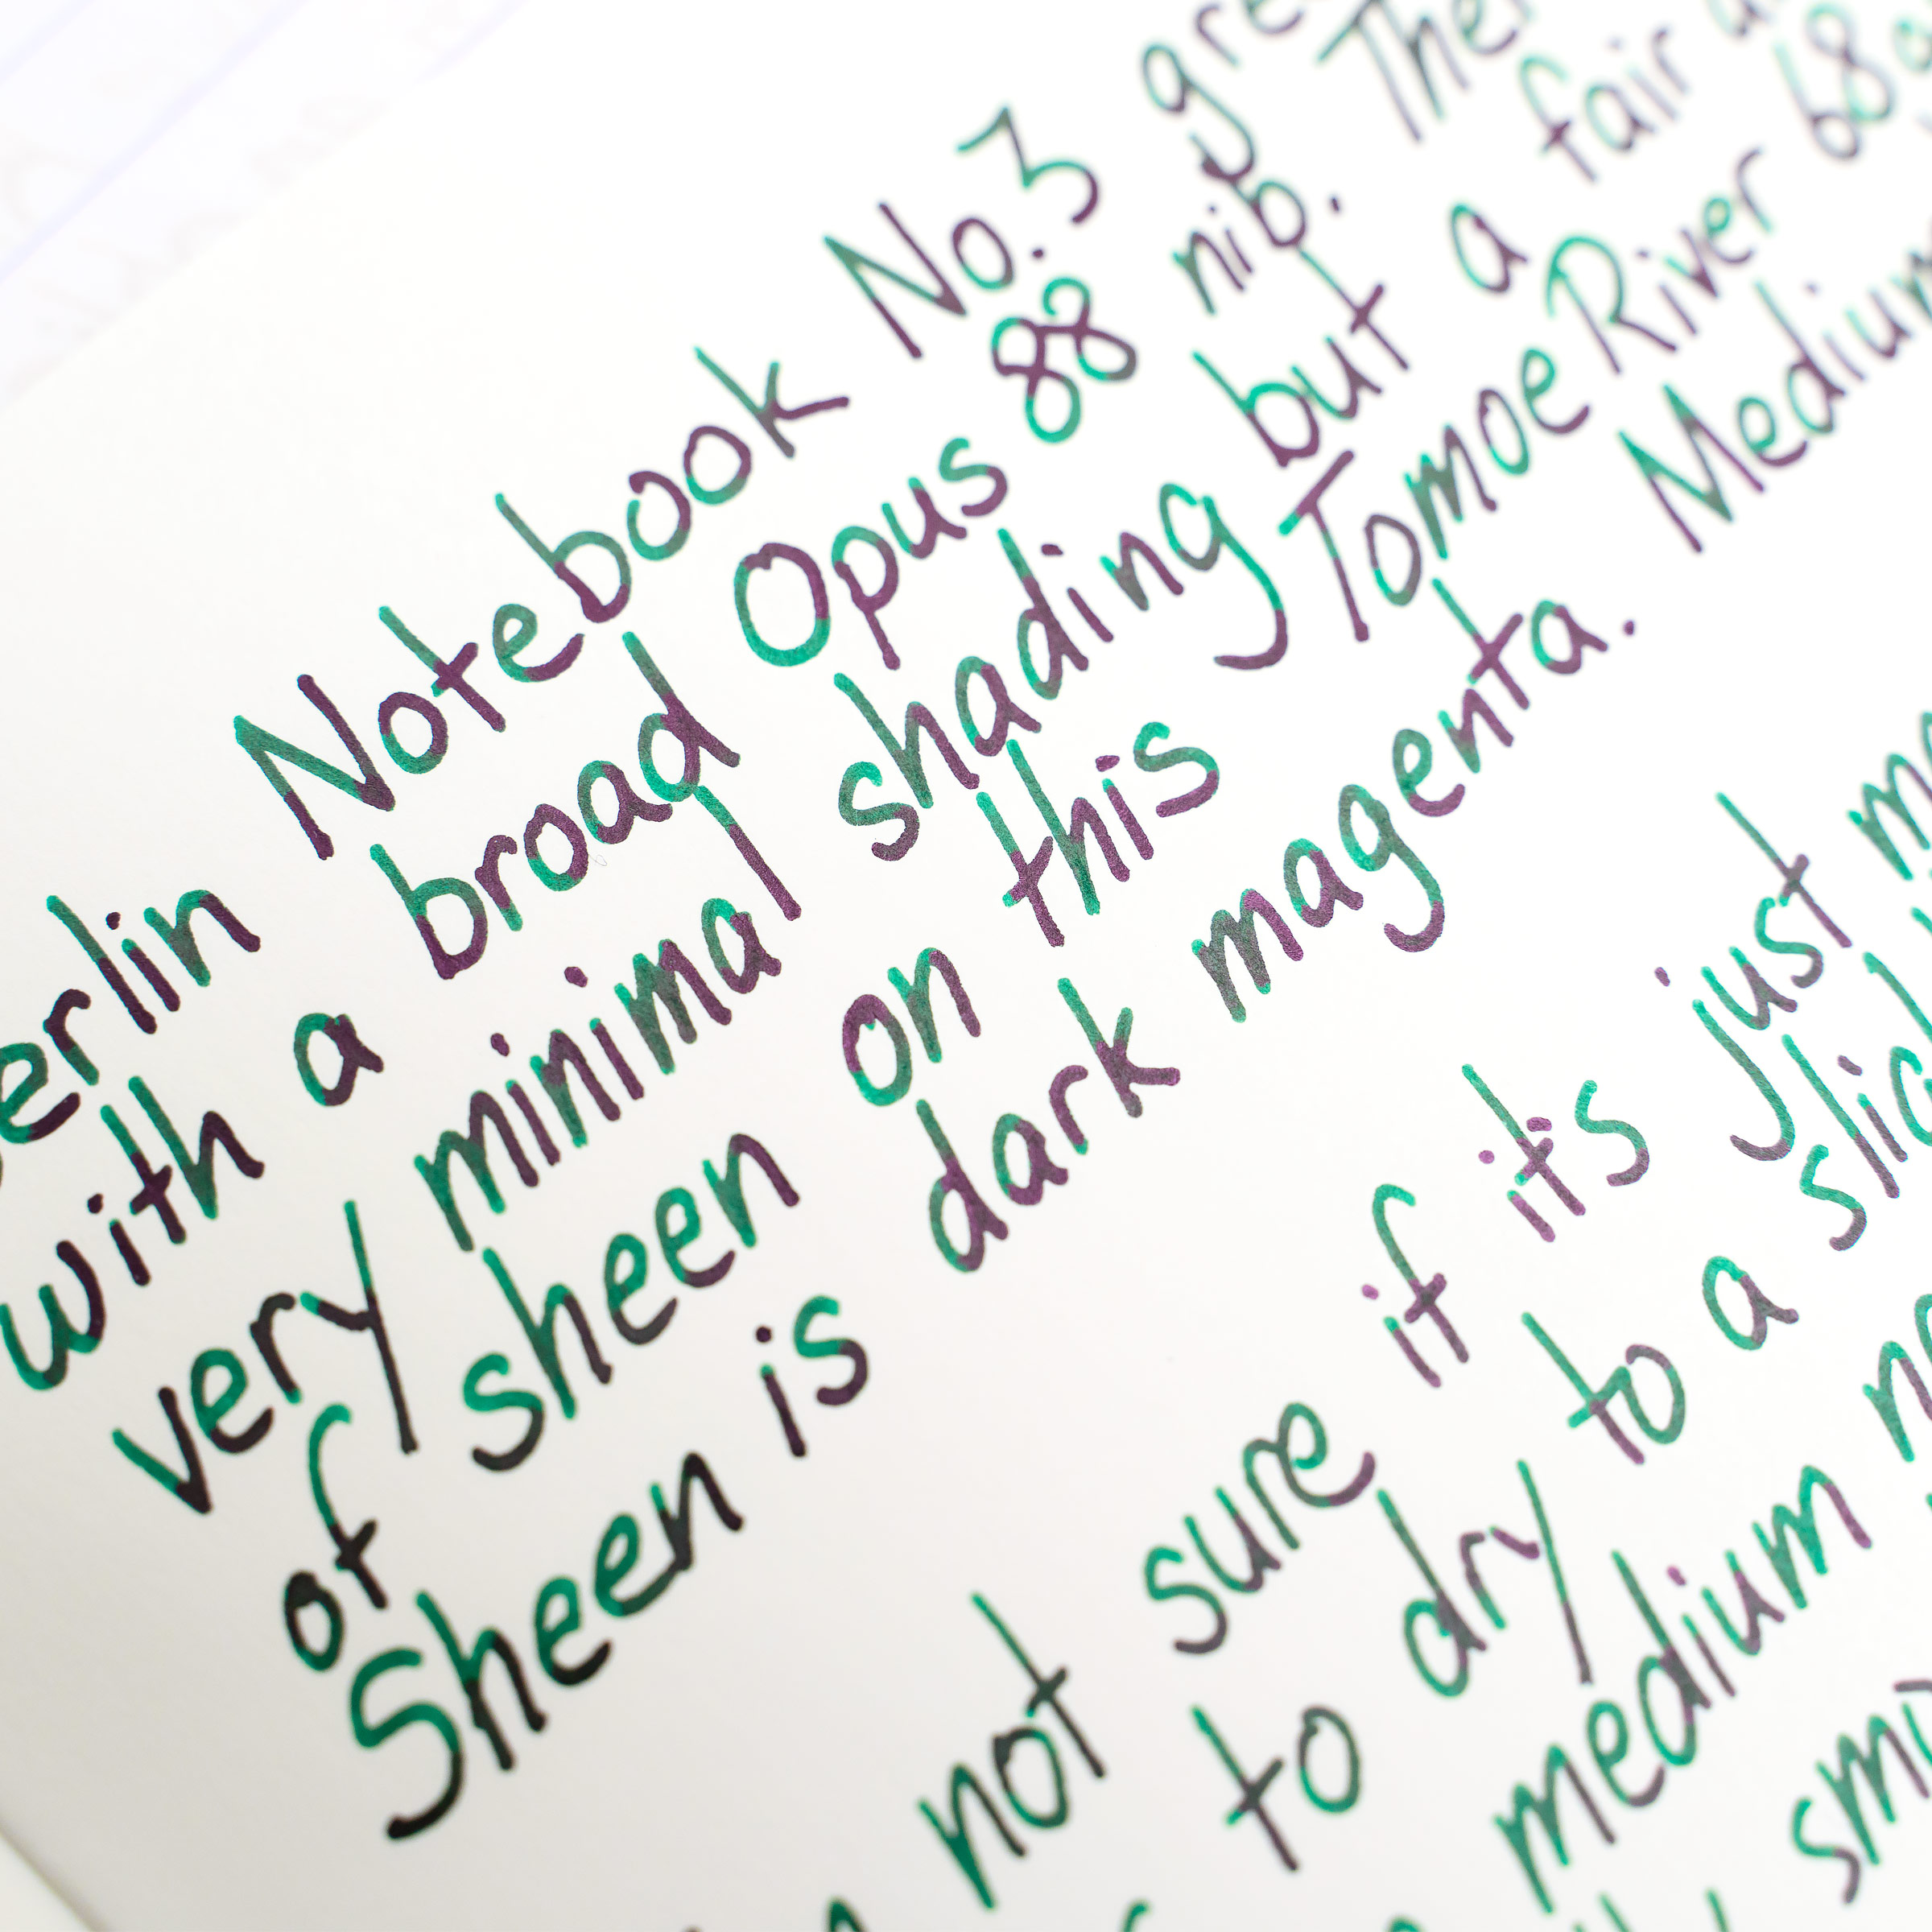 erlin Notebook No. 3 gre
with a broad Opus 88 nib. The
very minimal shading but a fair a
of sheen on this Tomoe River 68g
Sheen is dark magenta. Medium
not sure if it's just ma
to dry to a slig
medium
smi